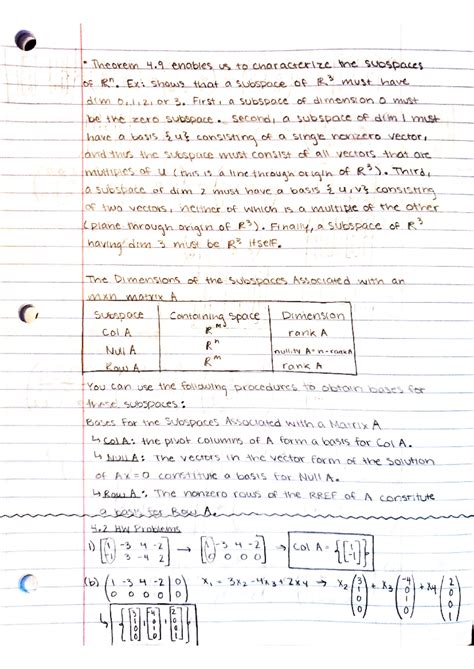 • Theorem 4.9 enables us to characterize the subspaces
of Rⁿ. Ex: shows that a subspace of R³ must have
dim 0,1,2, or 3. First, a subspace of dimension 0 must
be the zero subspace. Second, a subspace of dim 1 must
have a basis {u} consisting of a single nonzero vector,
and thus the subspace must consist of all vectors that are
multiples of u (this is a line through origin of R³). Third,
a subspace of dim 2 must have a basis {u,v} consisting
of two vectors, neither of which is a multiple of the other
(plane through origin of R³). Finally, a subspace of R³
having dim 3 must be R³ itself.
The Dimensions of the Subspaces Associated with an
mxn matrix A
Subspace Containing Space Dimension
Col A Rᵐ rank A
Null A Rⁿ nullity A = n-rank A
Row A Rᵐ rank A
You can use the following procedures to obtain bases for
these subspaces:
Bases for the Subspaces Associated with a Matrix A
↳ Col A: the pivot columns of A form a basis for Col A.
↳ Null A: The vectors in the vector form of the solution
of Ax=0 constitute a basis for Null A.
↳ Row A: The nonzero rows of the RREF of A constitute
a basis for Row A.
4.2 HW Problems
1) [1 -3 4 -2 → [1 -3 4 -2 → Col A = {[1
-1 3 -4 2] 0 0 0 0] -1]}
(b) (1 -3 4 -2 | 0 x₁ = 3x₂ - 4x₃ + 2x4 → x₂ (3 1 0 0) + x₃ (-4 0 1 0) + x4 (2 0 0 1)
0 0 0 0 | 0)
↳ {[3 1 0 0], [-4 0 1 0], [2 0 0 1]}